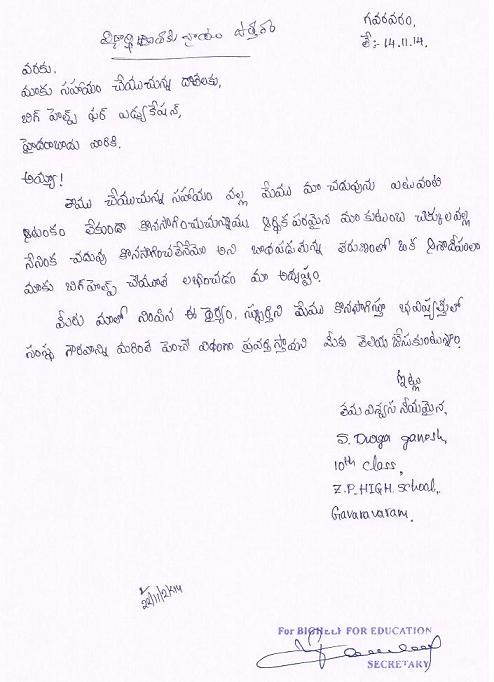 గవరవరం,
తే:- 14.11.14.
దాతలకు రాయు ఉత్తరం
వరకు,
మాకు సహాయం చేయుచున్న దాతలకు,
బిగ్ హెల్ప్ ఫర్ ఎడ్యుకేషన్,
హైదరాబాదు వారికి.
అయ్యా!
తాము చేయుచున్న సహాయం వల్ల మేము మా చదువును ఎటువంటి
ఆటంకం లేకుండా కొనసాగించుచున్నాము ఆర్థిక పరమైన మా కుటుంబ చిక్కులవల్ల
నేనింక చదువు కొనసాగించలేనేమో అని బాధపడుతున్న తరుణంలో ఒక ఆశాదీపంలా
మాకు బిగ్ హెల్ప్ చేయూత లభించడం మా అదృష్టం.
మీరు మాలో నింపిన ఈ ధైర్యం, స్ఫూర్తిని మేము కొనసాగిస్తూ భవిష్యత్తులో
సంస్థ గౌరవాన్ని మరింత పెంచే విధంగా ప్రవర్తిస్తామని మీకు తెలియ చేసుకుంటున్నాం.
ఇట్లు
తమ విశ్వాస నీయమైన,
S. Durga ganesh,
10th class,
Z.P. HIGH School,
Gavaravaram.
22/11/2k14
For BIGHELP FOR EDUCATION
SECRETARY